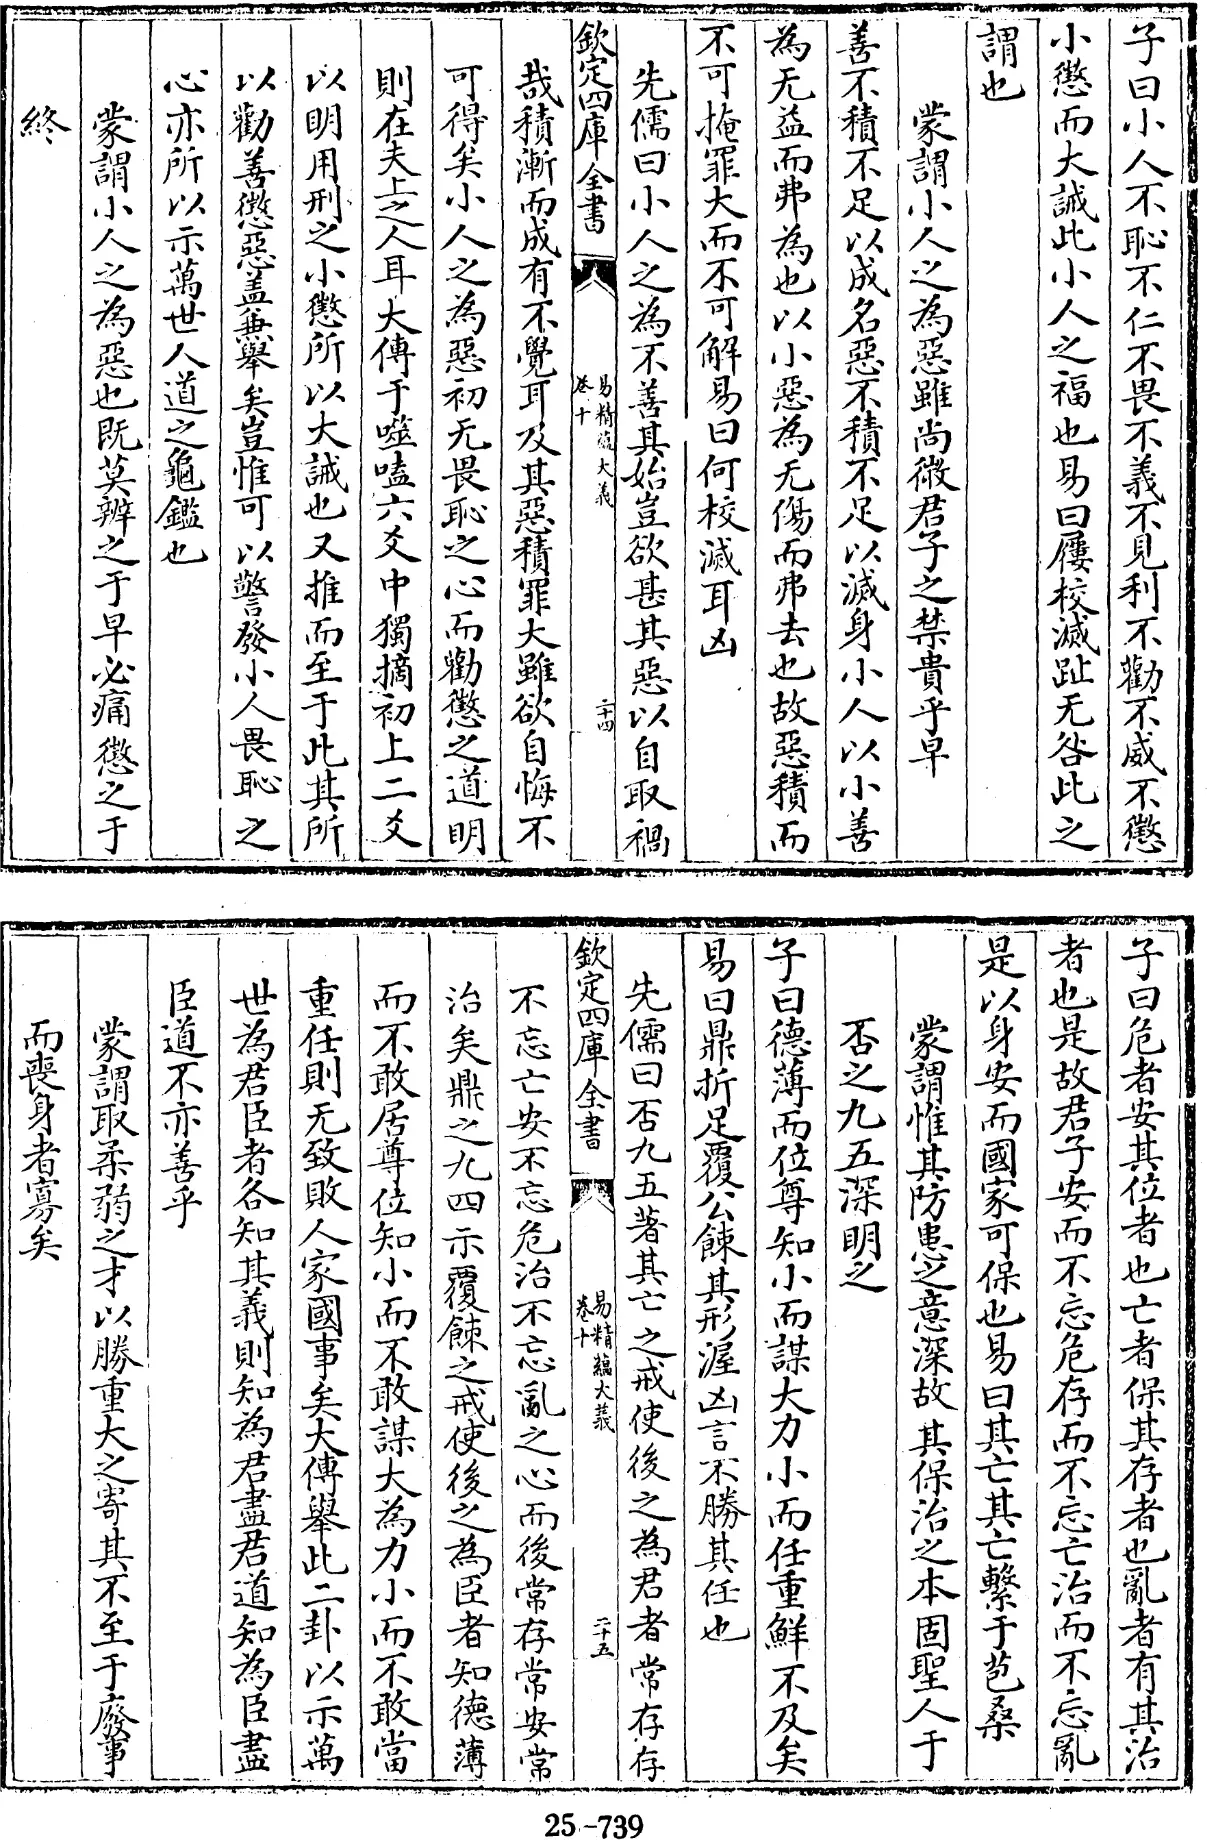 子曰小人不恥不仁不畏不義不見利不勸不威不懲
小懲而大誡此小人之福也易曰屨校滅趾无咎此之
謂也
蒙謂小人之為惡雖尚微君子之禁貴乎早
善不積不足以成名惡不積不足以滅身小人以小善
為无益而弗為也以小惡為无傷而弗去也故惡積而
不可掩罪大而不可解易曰何校滅耳凶
先儒曰小人之為不善其始豈欲甚其惡以自取禍
欽定四庫全書
易精蘊大義
卷十
二十四
哉積漸而成有不覺耳及其惡積罪大雖欲自悔不
可得矣小人之為惡初无畏恥之心而勸懲之道明
則在夫上之人耳大傳于噬嗑六爻中獨摘初上二爻
以明用刑之小懲所以大誡也又推而至于此其所
以勸善懲惡盖兼舉矣豈惟可以警發小人畏恥之
心亦所以示萬世人道之龜鑑也
蒙謂小人之為惡也既莫辨之于早必痛懲之于
終
子曰危者安其位者也亡者保其存者也亂者有其治
者也是故君子安而不忘危存而不忘亡治而不忘亂
是以身安而國家可保也易曰其亡其亡繫于苞桑
蒙謂惟其防患之意深故其保治之本固聖人于
否之九五深明之
子曰德薄而位尊知小而謀大力小而任重鮮不及矣
易曰鼎折足覆公餗其形渥凶言不勝其任也
先儒曰否九五著其亡之戒使後之為君者常存存
欽定四庫全書
易精蘊大義
卷十
二十五
不忘亡安不忘危治不忘亂之心而後常存常安常
治矣鼎之九四示覆餗之戒使後之為臣者知德薄
而不敢居尊位知小而不敢謀大為力小而不敢當
重任則无致敗人家國事矣大傳舉此二卦以示萬
世為君臣者各知其義則知為君盡君道知為臣盡
臣道不亦善乎
蒙謂取柔弱之才以勝重大之寄其不至于廢事
而喪身者寡矣
25-739